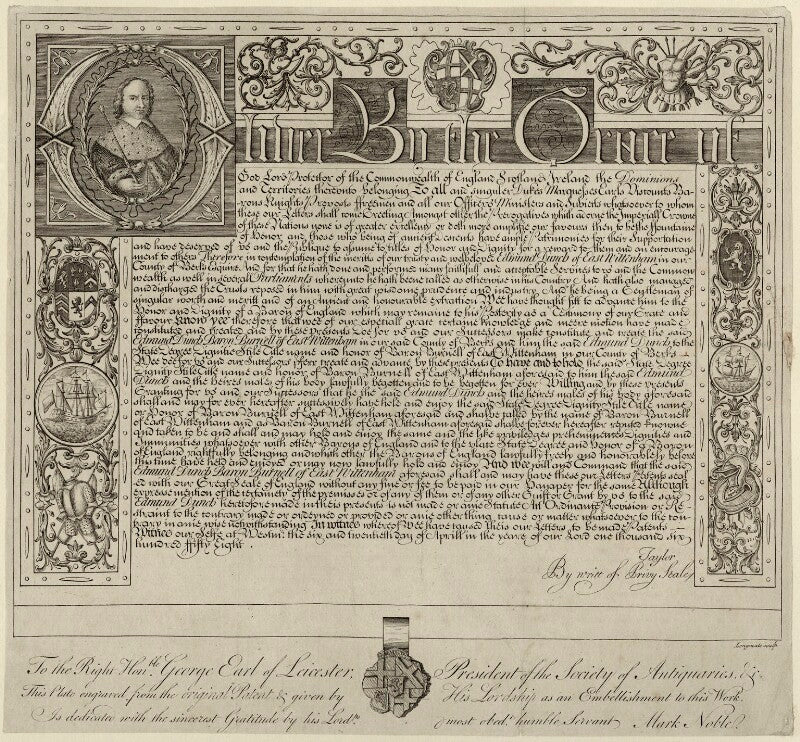 Oliver By the Grace of
God Lord Protector of the Commonwealth of England Scotland & Ireland the Dominions
and Territories thereunto belonging To all and singuler Dukes Marquesses Earls Viscounts Ba
rons Knights Provosts ffreemen and all our Officers Ministers and Subiects whatsoever to whom
these our Letters shall come Greeting Amongst other the Prerogatives which adorne the Imperiall Crowne
of these Nations none is of greater excellency or doth more amplifie our favours then to be the ffountaine
of Honor and those who being of ancient descents have ample Patrimonies for their Supportation
and have deserved of us and the Publique to assume to titles of Honor and Dignity for a reward to them and an encourage
ment to others Therefore in contemplation of the meritts of our trusty and welbeloved Edmund Dunch of East Wittenham in our
County of Berks Esquire And for that he hath done and performed many faithfull and acceptable Services to us and the Common
wealth as well in severall Parliaments whereunto he hath been called as otherwise in his Country And hath also managed
and discharged the Trusts reposed in him with great wisdome prudence and industry And he being a Gentleman of
singular worth and meritt and of an antient and honourable extraction Wee have thought fitt to advance him to the
Honor and Dignity of a Baron of England which may remaine to his Posterity as a Testimony of our Grace and
ffavour Know yee therefore that wee of our especiall grace certaine knowledge and meere motion have made
constituted and created and by these presents doe for us and our Successors make constitute and create the said
Edmund Dunch Baron Burnell of East Wittenham in our said County of Berks and him the said Edmund Dunch to the
State Degree Dignitie Stile Title name and honor of Baron Burnell of East Wittenham in our County of Berks
We doe for us and our Successors preferr create and advance by these presents To have and to hold the said State Degree
Dignity Stile Title name and honor of Baron Burnell of East Wittenham aforesaid to him the said Edmund
Dunch and the heires males of his body lawfully begotten and to be begotten for ever Willing and by these presents
Granting for us and our Successors that he the said Edmund Dunch and the heires males of his body aforesaid
shall and may for ever hereafter successively have hold and enjoy the said State Degree Dignity Stile Title name
or Honor of Baron Burnell of East Wittenham aforesaid and shalbe called by the name of Baron Burnell
of East Wittenham and as Baron Burnell of East Wittenham aforesaid shalbe forever hereafter reputed knowne
and taken to be and shall and may hold and enjoy the same and the like priviledges preheminences Dignities and
Immunities whatsoever with other Barons of England and to the State Degree and Honor of a Baron
of England rightfully belonging and which other the Barons of England lawfully freely and honorably before
this time have held and enjoyed or may now lawfully hold and enjoy And wee will and Command that the said
Edmund Dunch Baron Burnell of East Wittenham aforesaid shall and may have these our Letters Patents seal
ed with our Great Seale of England without any fine or fee to be paid in our Hanaper for the same Although
expresse mention of the certainty of the premisses or of any of them or of any other Guift or Grant by us to the said
Edmund Dunch heretofore made in theis presents is not made or anie Statute Act Ordinance Provision or Re
straint to the contrary made or ordeyned or provided or anie other thing cause or matter whatsoever to the con
trary in anie wise notwithstanding In witness whereof Wee have caused theis our Letters to be made Patents
Witnes our Selfe at Westmr. the six and twentieth day of Aprill in the yeare of our Lord one thousand six
hundred ffifty Eight
Tayler
By writt of Privy Seale
Longmate sculp.
To the Right Honble. George Earl of Leicester, President of the Society of Antiquaries, &c.
This Plate engraved from the original Patent & given by His Lordship as an Embellishment to this Work.
Is dedicated with the sincerest Gratitude by his Lordps. most obedt. humble Servant Mark Noble.